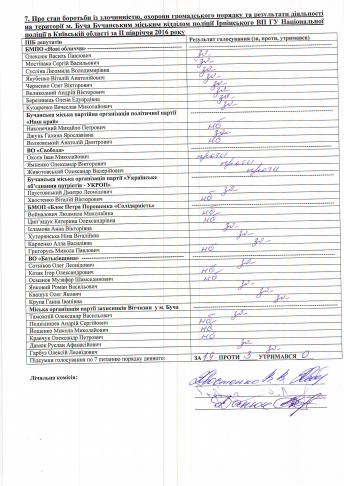 7. Про стан боротьби із злочинністю, охорони громадського порядку та результати діяльності
на території м. Буча Бучанським міським відділом поліції Ірпінського ВП ГУ Національної
поліції в Київській області за ІІ півріччя 2016 року
ПІБ депутатів Результат голосування (за, проти, утримався)
БМПО «Нові обличчя»
Олексюк Василь Павлович за
Мостіпака Сергій Васильович за
Суслік Людмила Володимирівна за
Якубенко Віталій Анатолійович за
Черненко Олег Вікторович за
Великодний Андрій Вікторович за
Березняк Олена Едуардівна за
Кухаренко Вячеслав Миколайович за
Бучанська міська партійна організація політичної партії
«Наш край»
Наконечний Михайло Петрович нб
Джунь Галина Ярославівна за
Волковський Анатолій Дмитрович нб
ВО «Свобода»
Окога Іван Миколайович проти
Яненко Олександр Вікторович проти
Животовський Олександр Валерійович проти
Бучанська міська організація партії «Українське
об'єднання патріотів - УКРОП»
Паустовський Дмитро Леонідович за
Хвостенко Віталій Вікторович нб
БМОП «Блок Петра Порошенка «Солідарність»
Войналович Людмила Миколаївна нб
Катерина Олександрівна нб
Ісламова Анна Вікторівна за
Хуторянська Ніна Віталіївна за
Карпенко Алла Василівна за
Григорук Микола Павлович нб
ВО «Батьківщина»
Сотніков Олег Леонідович за
Козак Ігор Олександрович нб
Османов Музафар Шамсаддинович нб
Янковий Роман Васильович за
Квашук Олег Якович за
Крупа Ганна Іванівна за
Міська організація партії захисників Вітчизни у м. Буча
Тамозній Олександр Васильович нб
Полюшенко Андрій Сергійович нб
Йощенко Микола Миколайович нб
Кравчук Олександр Петрович нб
Давиюк Руслан Афанасійович за
Гарбуз Олексій Леонідович за
Підсумки голосування по 7 питанню порядку денного: ЗА 19 ПРОТИ 3 УТРИМАВСЯ 0
Лічильна комісія: